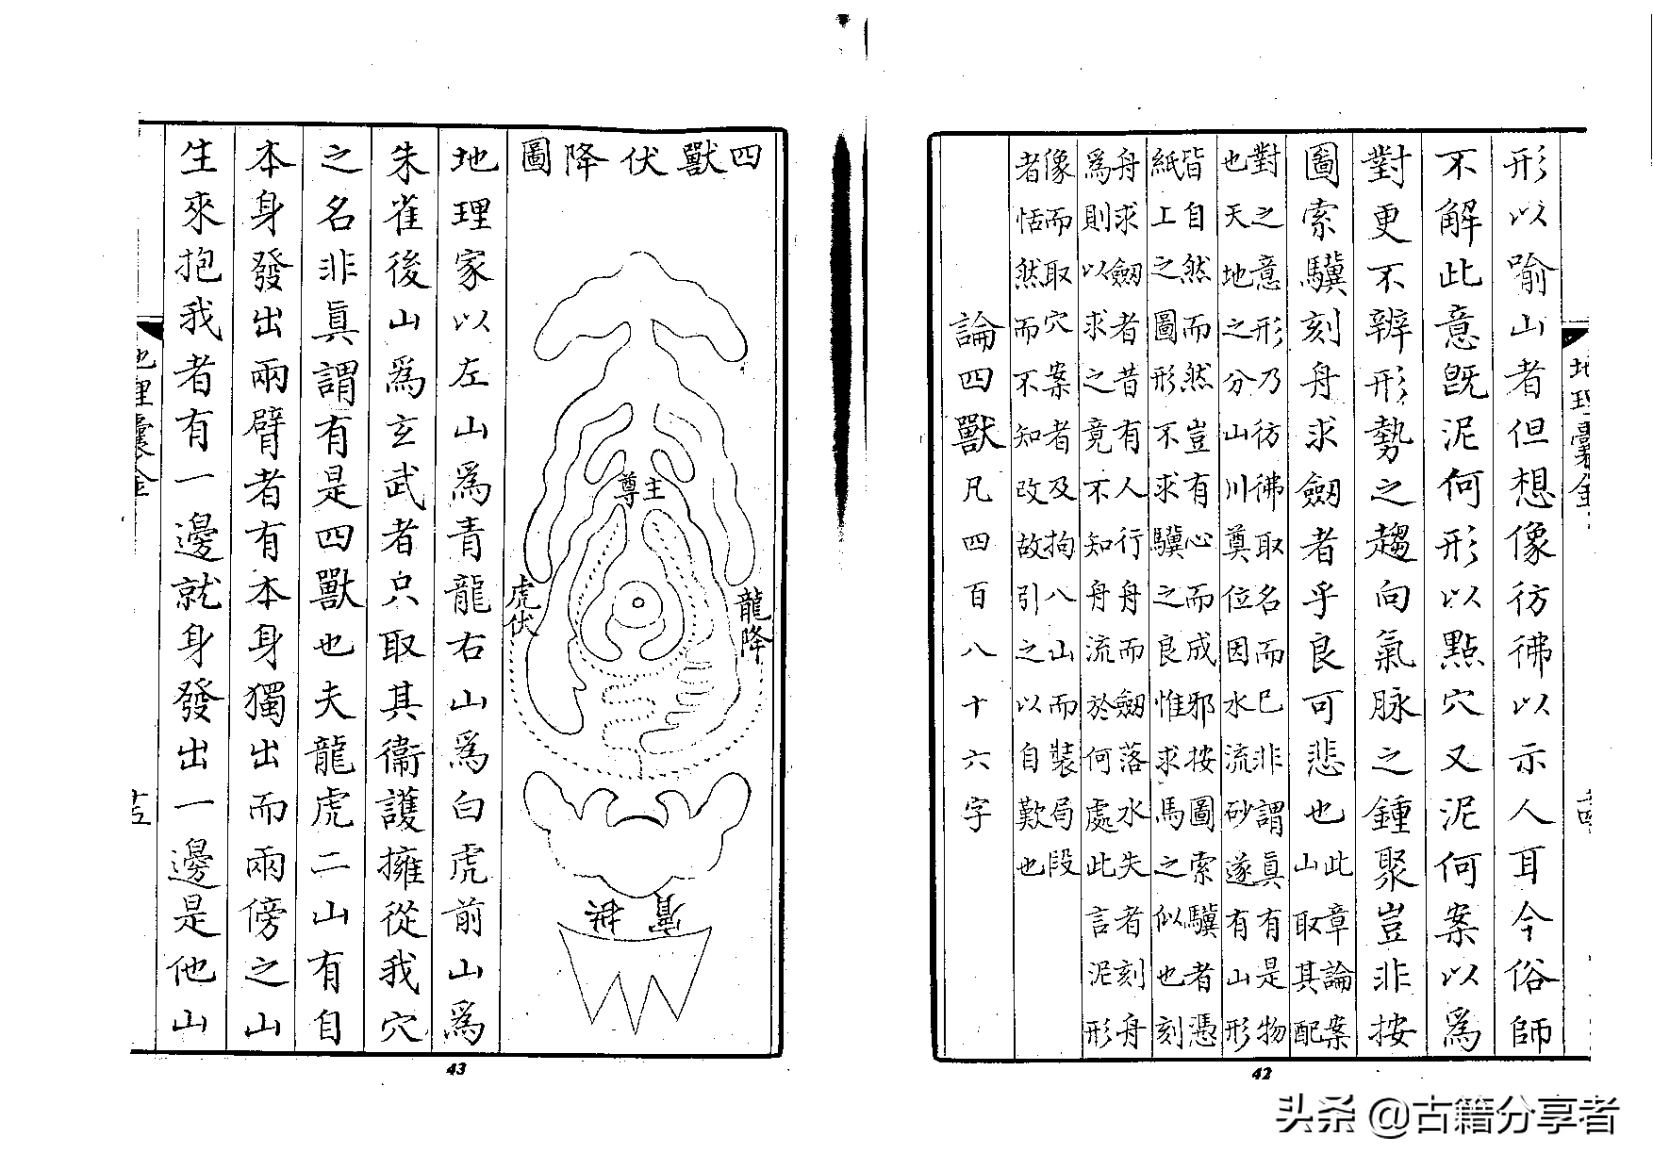 形以喻山者但想像彷彿以示人耳今俗師
不解此意旣泥何形以點穴又泥何案以爲
對更不辨形勢之趨向氣脉之鍾聚豈非按
圖索驥刻舟求劒者乎良可悲也
此章論案
山取其配
對之意形乃彷彿取名而已非謂眞有是物
也天地之分山川奠位因水流砂遂有山形
皆自然而然豈有心而成邪按圖索驥者憑
紙上之圖形不求驥之良惟求馬之似也刻
舟求劒者昔有人行舟而劒落水失者刻舟
爲則以求之竟不知舟流於何處此言泥形
像而取穴案者及拘八山而裝局段
者恬然而不知改故引之以自歎也
論四獸凡四百八十六字
42
四獸伏降圖
主尊
龍降
虎伏
地理家以左山爲青龍右山爲白虎前山爲
朱雀後山爲玄武者只取其衞護擁從我穴
之名非眞謂有是四獸也夫龍虎二山有自
本身發出兩臂者有本身獨出而兩傍之山
生來抱我者有一邊就身發出一邊是他山
地理囊金
43
头条 @古籍分享者